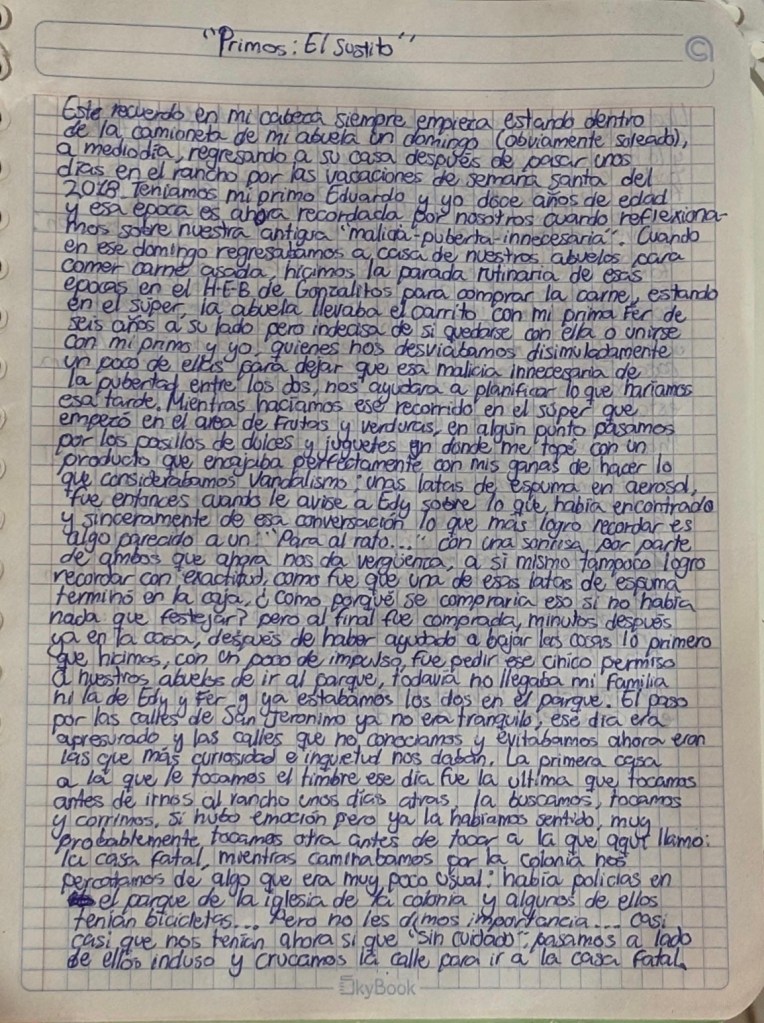 "Primos: El Sustito"
Este recuerdo en mi cabeza siempre empieza estando dentro
de la camioneta de mi abuela un domingo (obviamente soleado),
a mediodía, regresando a su casa después de pasar unos
días en el rancho por las vacaciones de semana santa del
2018. Teníamos mi primo Eduardo y yo doce años de edad
y esa época es ahora recordada por nosotros cuando reflexiona-
mos sobre nuestra antigua "malicia-puberta-innecesaria". Cuando
en ese domingo regresabamos a casa de nuestros abuelos para
comer carne asada, hicimos la parada rutinaria de esas
epocas en el H-E-B de Gonzalitos para comprar la carne, estando
en el súper, la abuela llevaba el carrito con mi prima Fer de
seis años a su lado pero indecisa de si quedarse con ella o unirse
con mi primo y yo, quienes nos desviabamos disimuladamente
un poco de ellas para dejar que esa malicia innecesaria de
la pubertad entre los dos, nos ayudara a planificar lo que hariamos
esa tarde. Mientras haciamos ese recorrido en el súper que
empezó en el area de frutas y verduras, en algún punto pasamos
por los pasillos de dulces y juguetes en donde me topé con un
producto que encajaba perfectamente con mis ganas de hacer lo
que considerabamos vandalismo: unas latas de espuma en aerosol,
fue entonces cuando le avise a Edy sobre lo que había encontrado
y sinceramente de esa conversación lo que más logro recordar es
algo parecido a un: "Para al rato..." con una sonrisa por parte
de ambos que ahora nos da vergüenza, a si mismo tampoco logro
recordar con exactitud, como fue que una de esas latas de espuma
terminó en la caja, ¿Como porqué se compraria eso si no había
nada que festejar? pero al final fue comprada, minutos después
ya en la casa, después de haber ayudado a bajar las cosas lo primero
que hicimos, con un poco de impulso, fue pedir ese cínico permiso
a nuestros abuelos de ir al parque, todavía no llegaba mi familia
ni la de Edy y Fer y ya estabamos los dos en el parque. El paso
por las calles de San Jeronimo ya no era tranquilo, ese día era
apresurado y las calles que no conociamos y evitabamos ahora eran
las que más curiosidad e inquietud nos daban. La primera casa
a la que le tocamos el timbre ese día fue la ultima que tocamos
antes de irnos al rancho unos días atras, la buscamos, tocamos
y corrimos, si hubo emoción pero ya la habíamos sentido, muy
probablemente tocamos otra antes de tocar a la que aquí llamo:
la casa fatal, mientras caminabamos por la colonia nos
percatamos de algo que era muy poco usual: había policias en
el parque de la iglesia de la colonia y algunos de ellos
tenían bicicletas... Pero no les dimos importancia... casi
casi que nos tenían ahora si que "sin cuidado", pasamos a lado
de ellos incluso y cruzamos la calle para ir a la casa fatal.
SkyBook